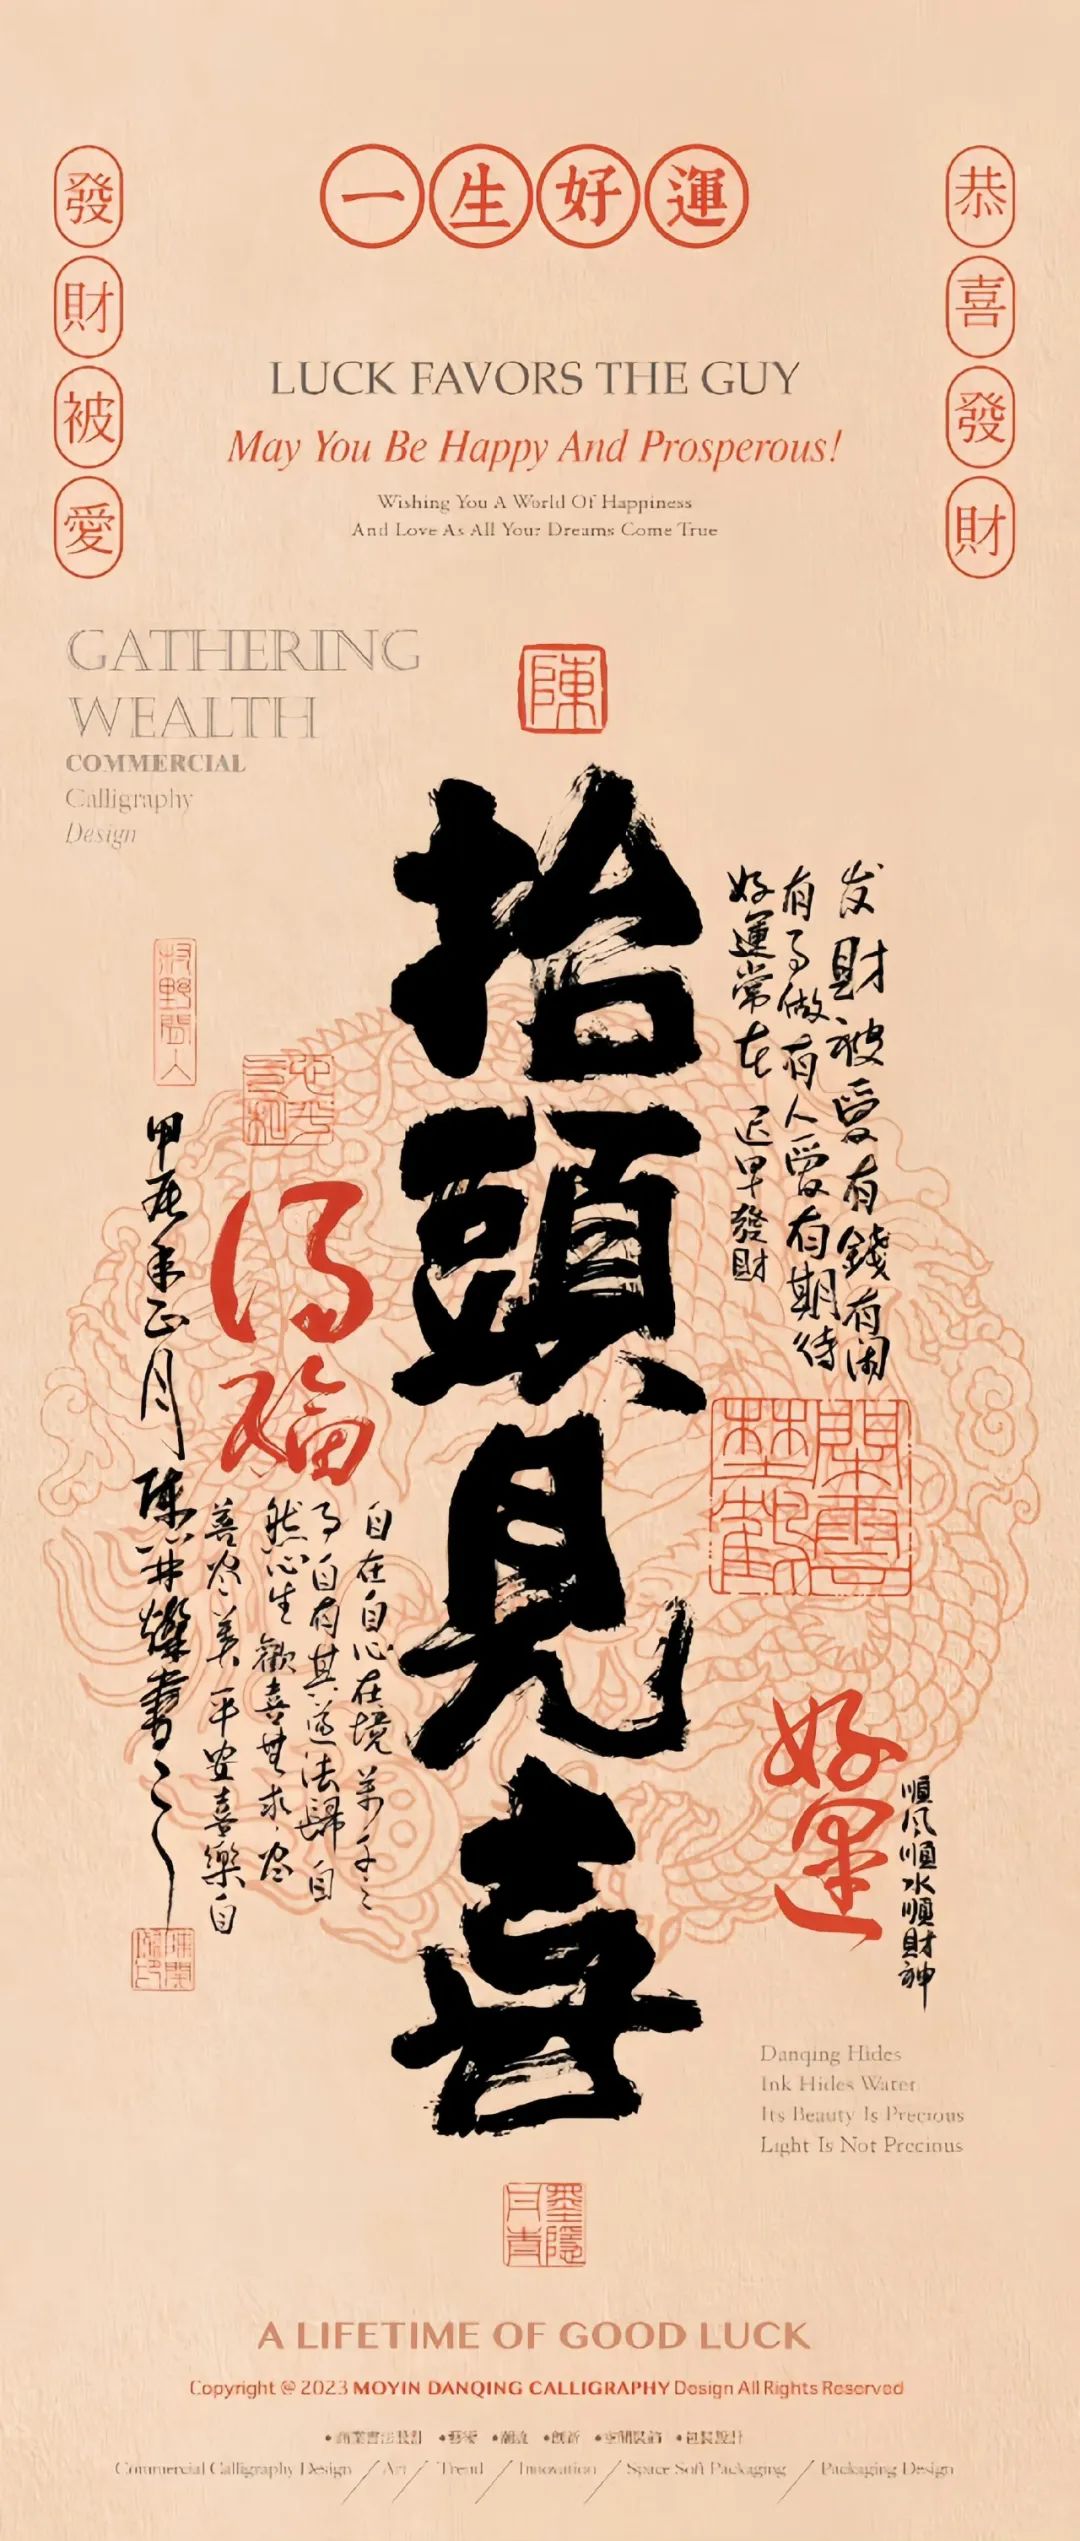 一生好運
發財被愛
恭喜發財
LUCK FAVORS THE GUY
May You Be Happy And Prosperous!
Wishing You A World Of Happiness
And Love As All Your Dreams Come True
GATHERING
WEALTH
COMMERCIAL
Calligraphy
Design
陳
抬頭見喜
发財被愛有錢有闲
有事做有人愛有期待
好運常在 迟早發財
得福
甲辰年正月陳
自在自心在境
事自有其道法歸自
然心生歡喜無求
善尽美平安喜樂自
好運
順風順水順財神
Danqing Hides
Ink Hides Water
Its Beauty Is Precious
Light Is Not Precious
墨隱丹青
A LIFETIME OF GOOD LUCK
Copyright @ 2023 MOYIN DANQING CALLIGRAPHY Design All Rights Reserved
•商業書法設計 •藝術 •潮流 •創新 •空間裝飾 •包裝設計
Commercial Calligraphy Design / Art / Trend / Innovation / Space Soft Packaging / Packaging Design